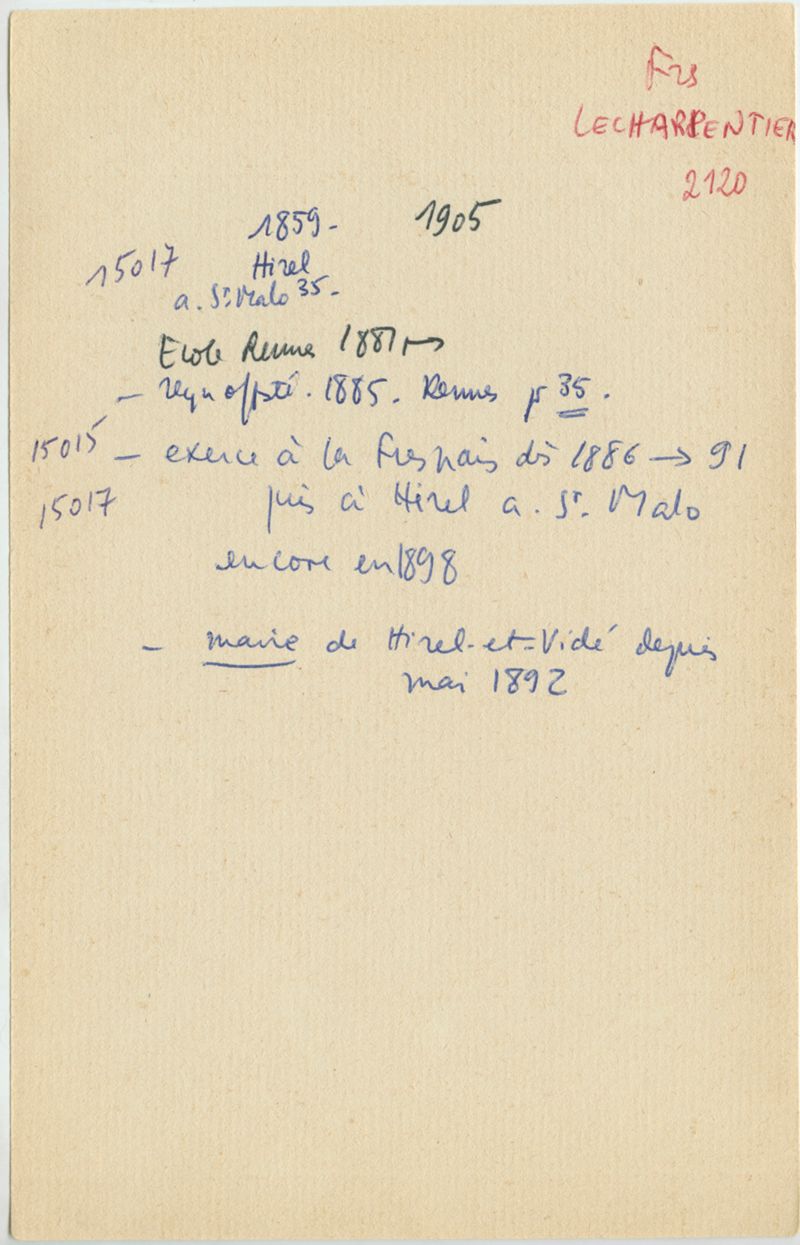 Frs
LECHARPENTIER
2120
1859- 1905
15017 Hirel
a. St Malo 35-
Ecole Rennes 1881
- reçu offsté. 1885. Rennes pr 35.
15015 - exerce à la Fresnais dès 1886 → 91
15017 puis à Hirel a. St. Malo
encore en 1898
- maire de Hirel-et-Vidé depuis
mai 1892